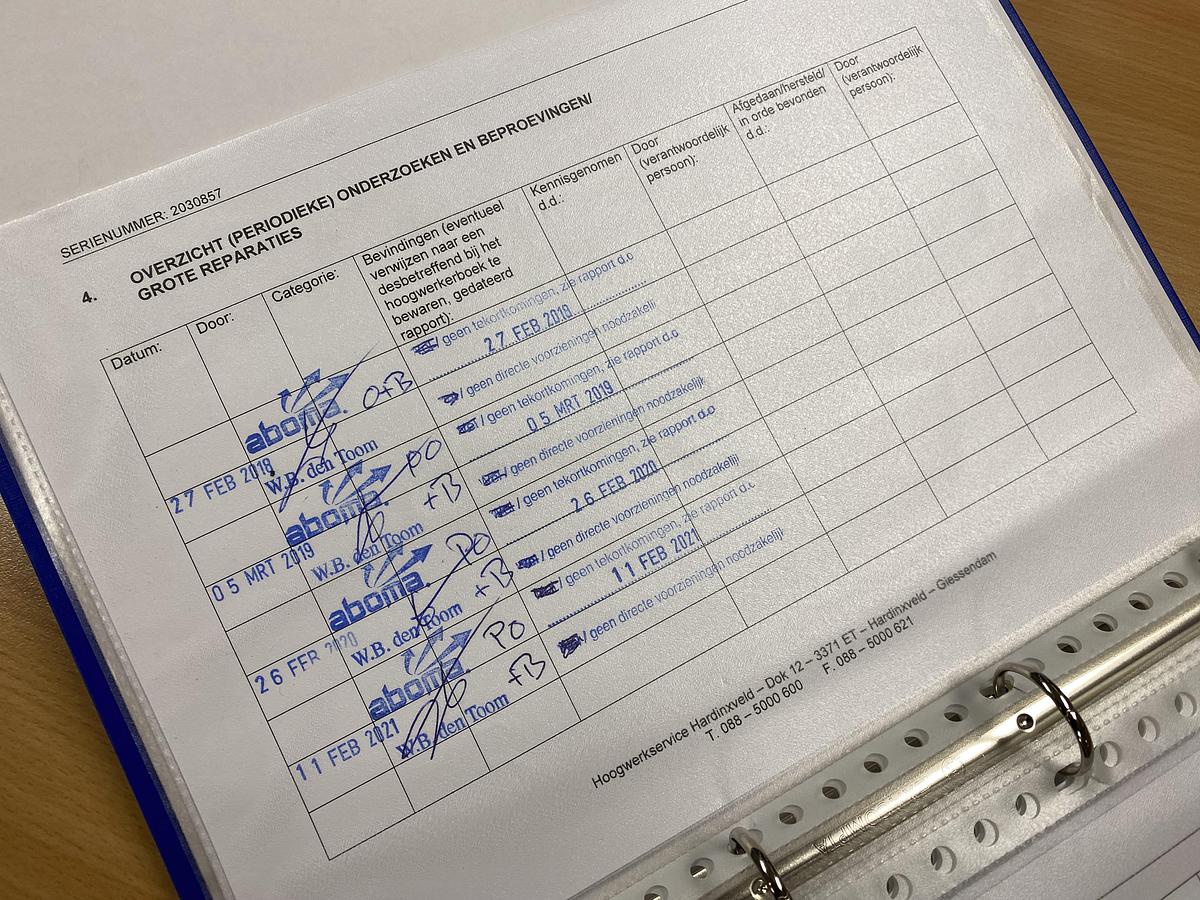 SERIENUMMER: 2030857
4. OVERZICHT (PERIODIEKE) ONDERZOEKEN EN BEPROEVINGEN/
GROTE REPARATIES
Datum:
Door:
Categorie:
Bevindingen (eventueel
verwijzen naar een
desbetreffend bij het
hoogwerkerboek te
bewaren, gedateerd
rapport):
Kennisgenomen
d.d.:
Door
(verantwoordelijk
persoon):
Afgedaan/hersteld/
in orde bevonden
d.d.:
Door
(verantwoordelijk
persoon):
27 FEB 2018
aboma.
W.B. den Toom
O+B
/ geen tekortkomingen, zie rapport d.d
27 FEB 2018
/ geen directe voorzieningen noodzakelij
05 MRT 2019
aboma.
W.B. den Toom
PO
+B
/ geen tekortkomingen, zie rapport d.d
05 MRT 2019
/ geen directe voorzieningen noodzakelijk
26 FEB 2020
aboma.
W.B. den Toom
PO
+B
/ geen tekortkomingen, zie rapport d.d
26 FEB 2020
/ geen directe voorzieningen noodzakelijk
11 FEB 2021
aboma.
W.B. den Toom
PO
+B
/ geen tekortkomingen, zie rapport d.d.
11 FEB 2021
/ geen directe voorzieningen noodzakelijk
Hoogwerkservice Hardinxveld – Dok 12 – 3371 ET – Hardinxveld – Giessendam
T. 088 – 5000 600 F. 088 – 5000 621